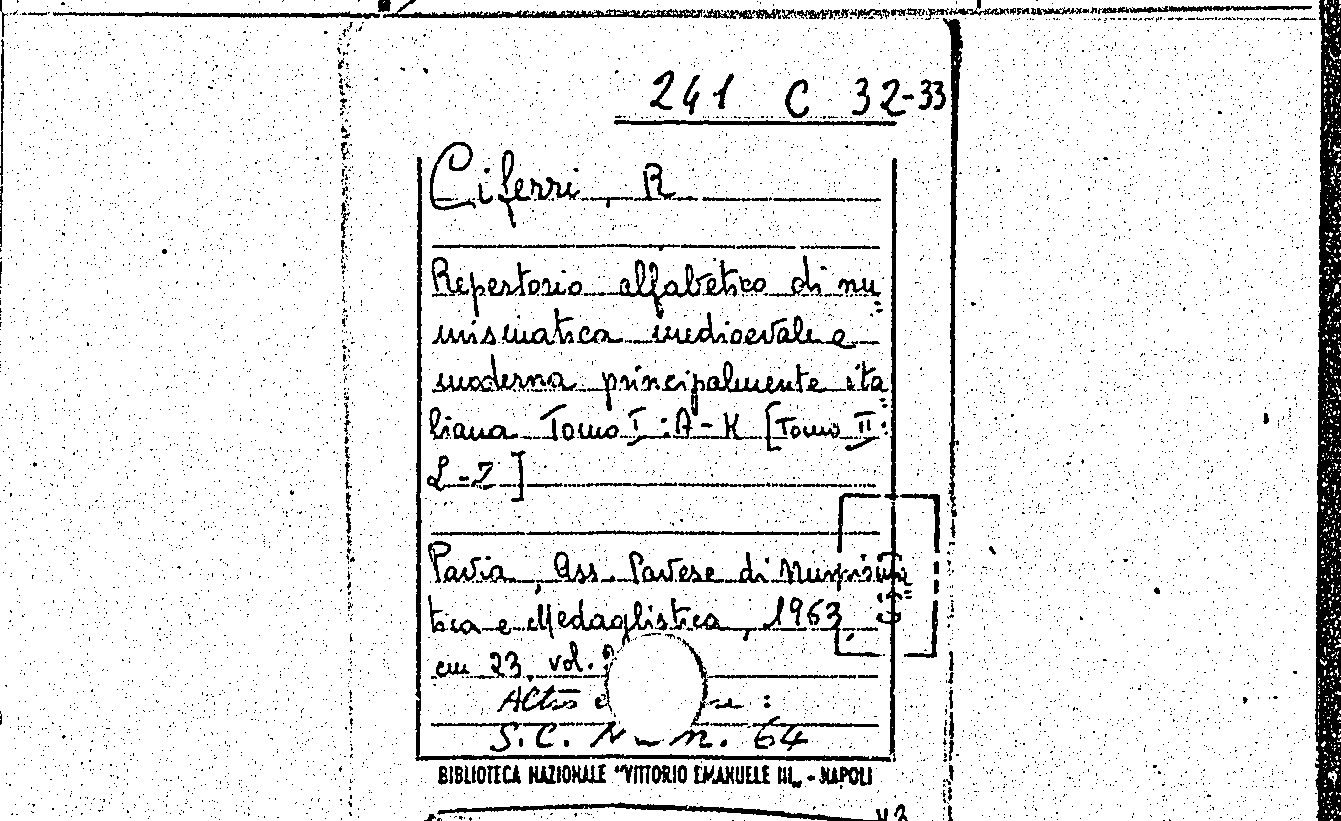 241 C 32-33
Ciferri, R
Repertorio alfabetico di nu=
mismatica medioevale e
moderna principalmente ita=
liana Tomo I: A-K [Tomo II:
L-Z]
Pavia, Ass. Pavese di Numisma=
tica e Medaglistica, 1963,
cm 23, vol. 2
S.C. N n. 64
BIBLIOTECA NAZIONALE "VITTORIO EMANUELE III„ - NAPOLI